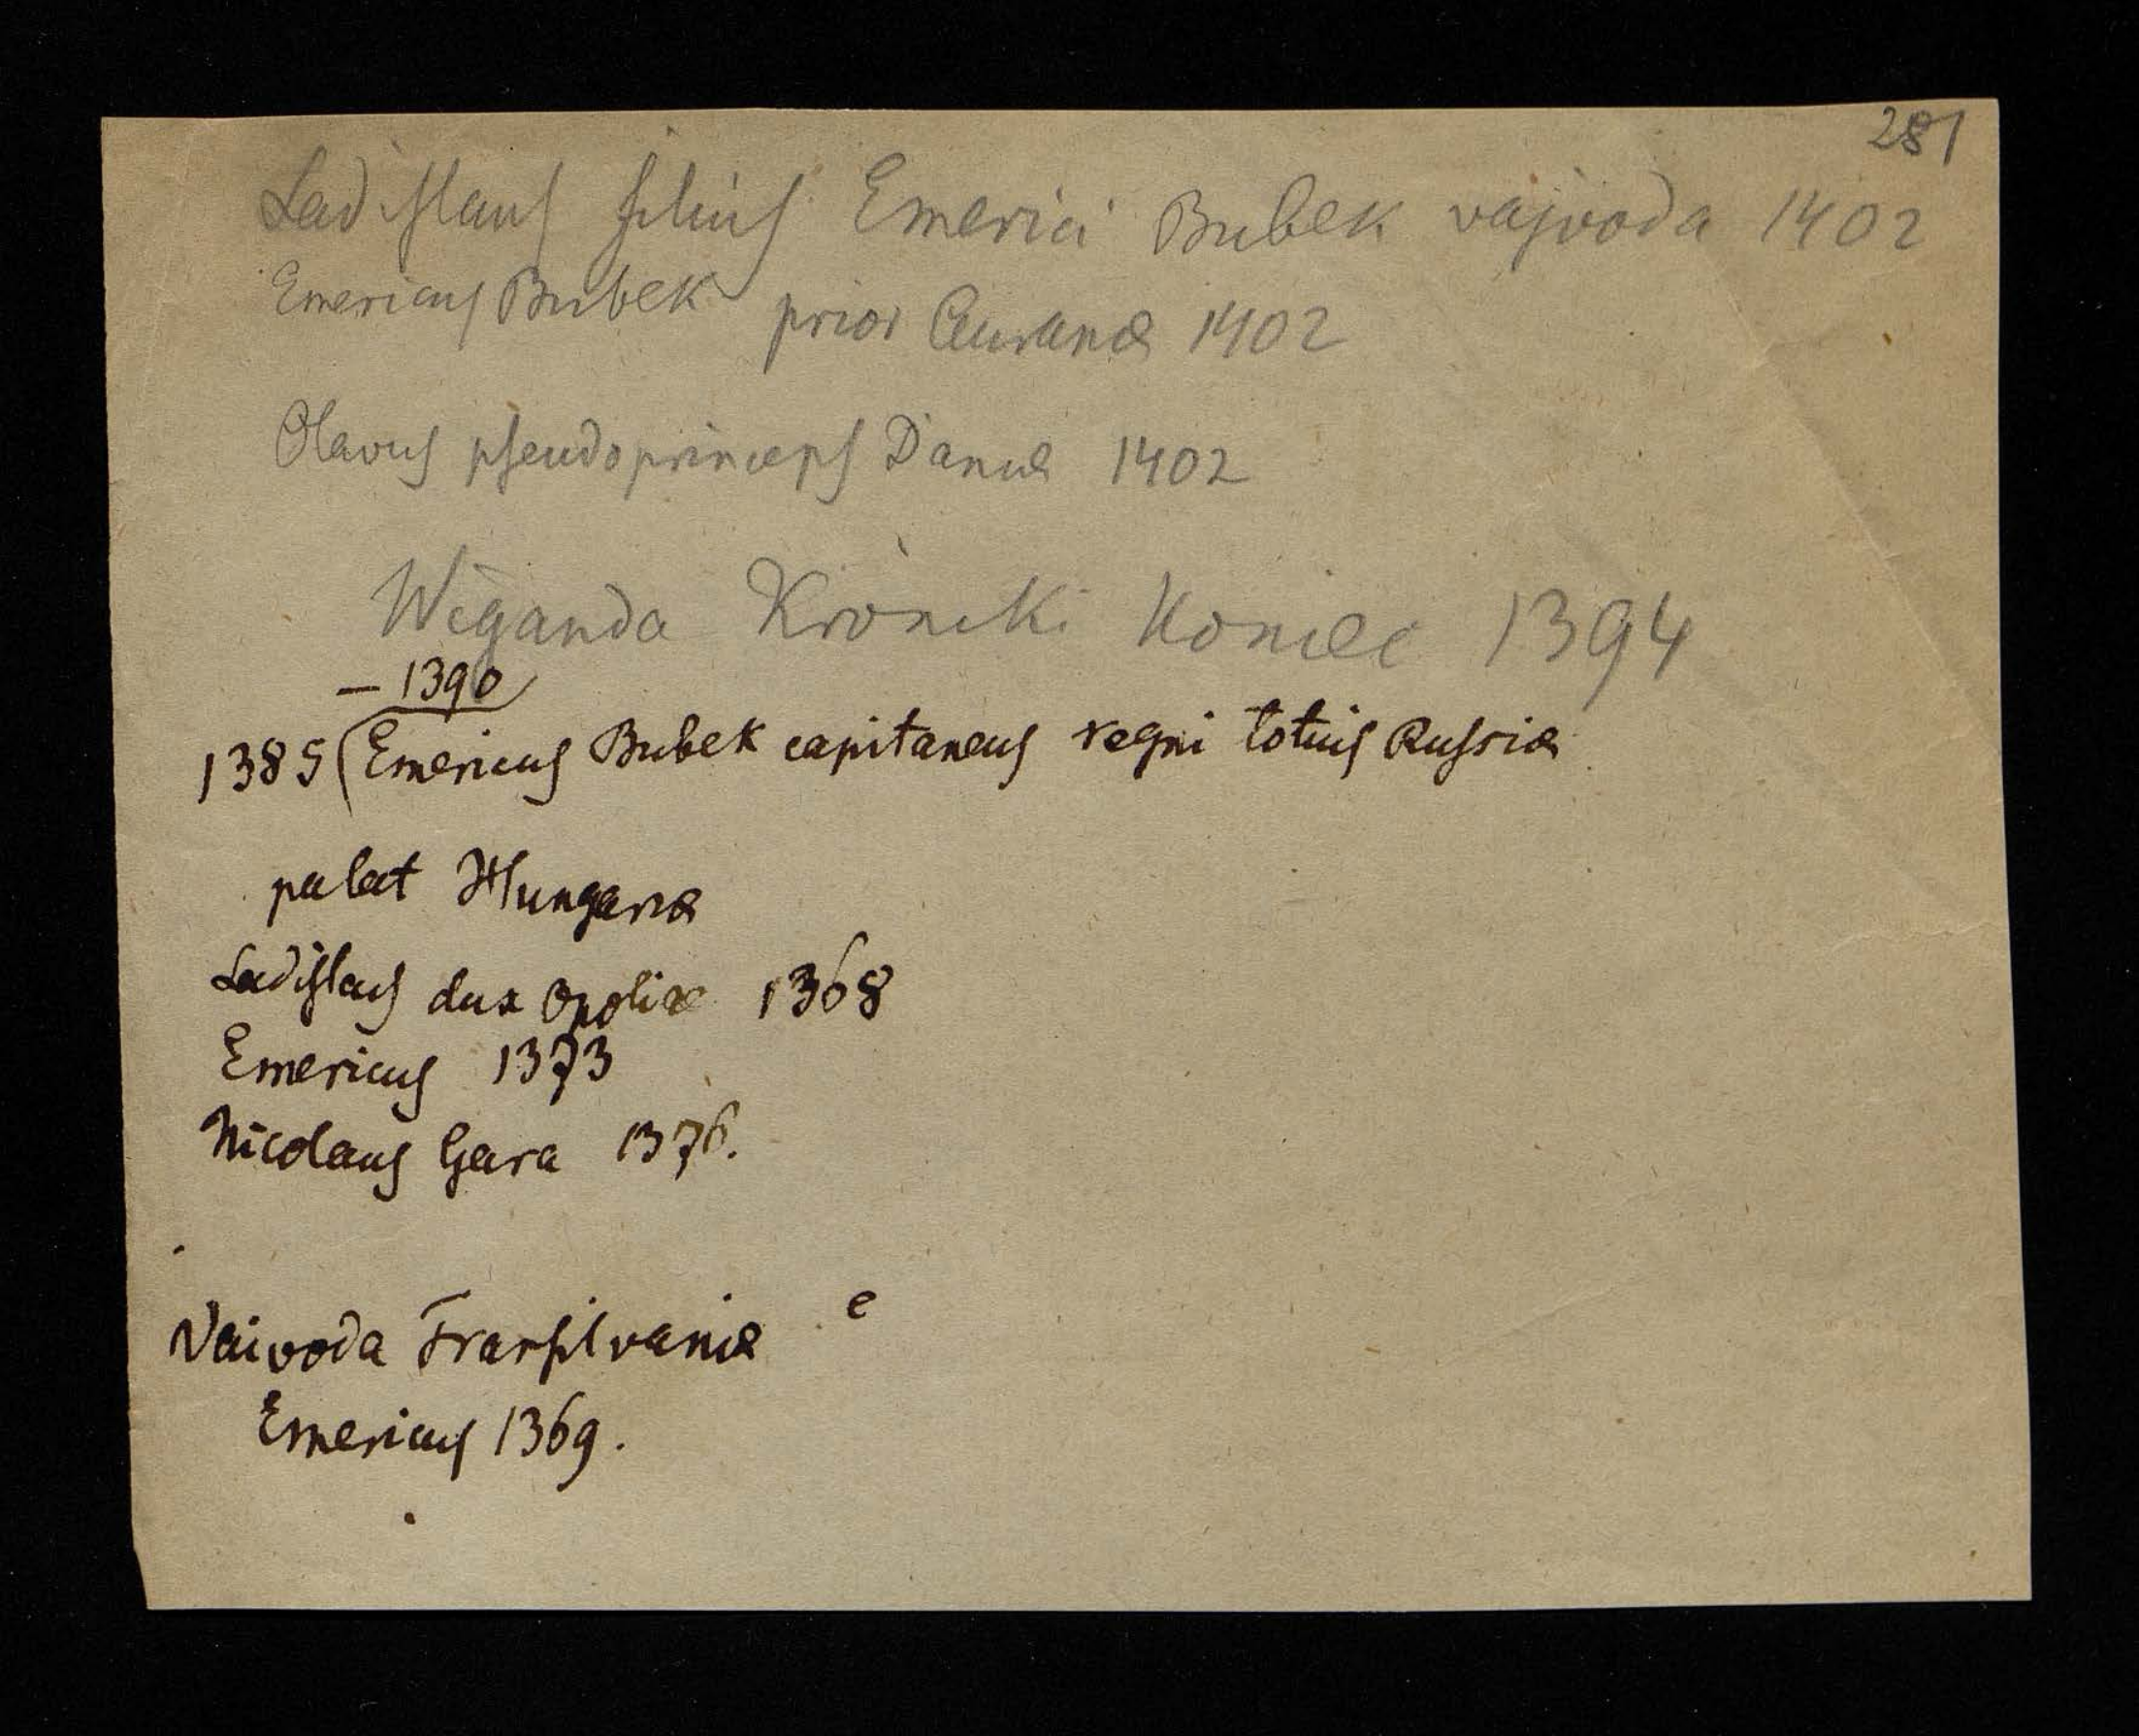 281
Ladislaus filius Emerici Bubek vajvoda 1402
Emericus Bubek prior Auranæ 1402
Olavus pseudoprinceps Daniæ 1402
Wiganda Kroniki Koniec 1394
– 1390
1385 (Emericus Bubek capitaneus regni totius Russiæ
palat Hungariæ
Ladislaus dux Opoliæ 1368
Emericus 1373
Nicolaus Gara 1376.
e
Vaivoda Transilvaniæ
Emericus 1369.